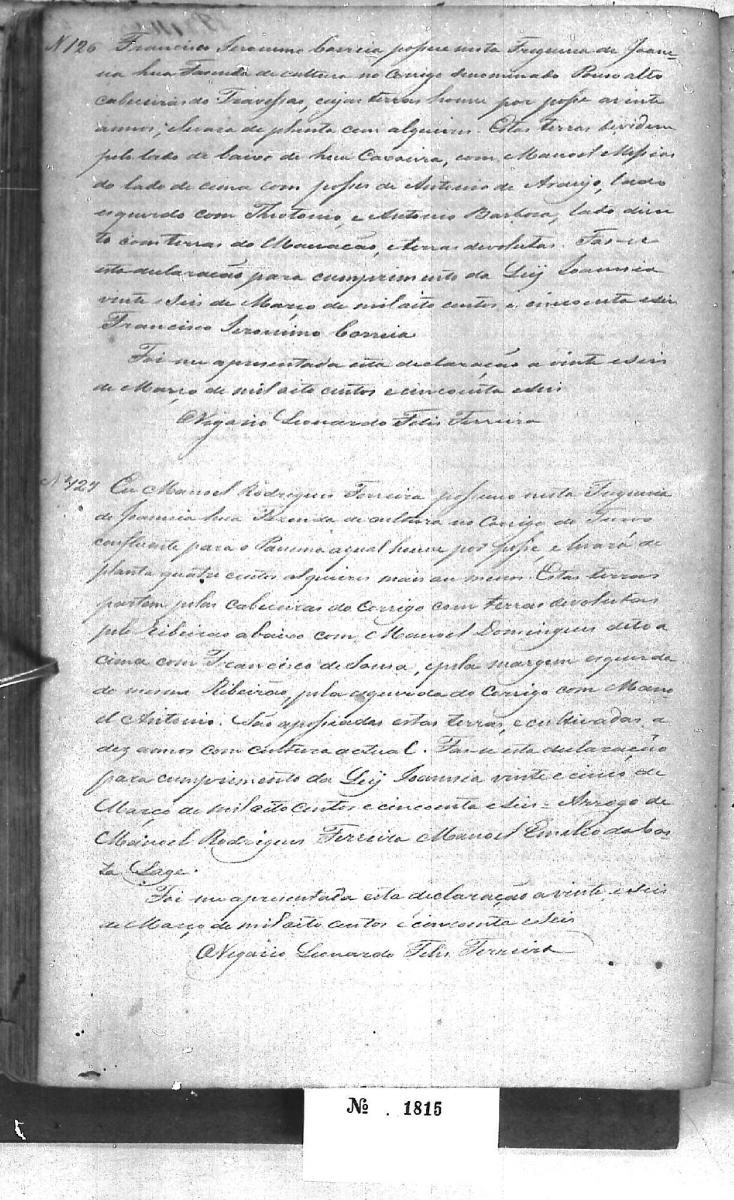 N 126 Francisco Jeronimo Correia possue nesta Freguesia de Joane-
sia hua Fasenda de cultura no Corrigo denominado Pouso alto
cabiceiras do Travessas, cujas terras houve por posse a vinte
annos, e levará de planta cem alqueires. Estas terras devidem
pelo lado de baixo de hua Caxoeira, com Manoel Messias
do lado de cima com posses de Antonio de Araujo, lado
esquerdo com Theotonio, e Antonio Barbosa, lado direi-
to com terras do e terras devolutas. Fas-se
esta declaração para cumprimento da Ley Joannesia
vinte e Seis de Março de mil oito centos e cincoenta e seis
Francisco Jeronimo Correia
Foi me apresentada esta declaração a vinte e seis
de Março de mil oito centos e cincoenta e seis
O Vigario Leonardo Felis Ferreira
N 127 Eu Manoel Rodrigues Ferreira possuo nesta Freguesia
de Joannesia hua Fazenda de cultura no Corrigo do
confluente para o a qual houve por posse e levará de
planta quatro centos alqueires mais ou menos. Estas terras
partem pelas cabiceiras do Corrigo com terras devolutas
pelo Ribeirão abaixo com Manoel Domingues dito a
cima com Francisco de Sousa, e pela margem esquerda
do mesmo Ribeirão, pela esquerda do Corrigo com Mano
el Antonio. São apossiadas estas terras, e cultivadas a
dez annos com cultura actual. Fas-se esta declaração
para cumprimento da Ley Joannesia vinte e cinco de
Março de mil oito centos e cincoenta e seis = Arrogo de
Manoel Rodrigues Ferreira Manoel Emilio da Cos-
ta Lage.
Foi me apresentada esta declaração a vinte e seis
de Março de mil oito centos e cincoenta e seis
O Vigario Leonardo Felis Ferreira
Nº . 1815